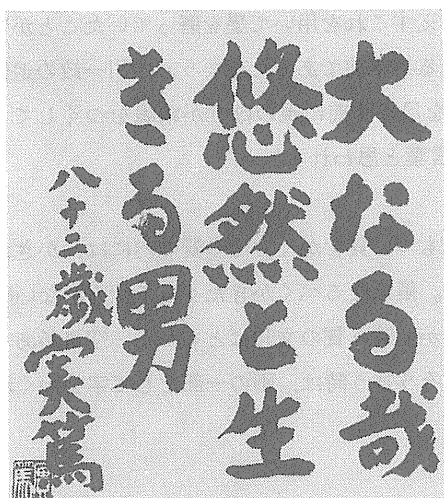 大なる哉
悠然と生
きる男
八十二歳 実篤